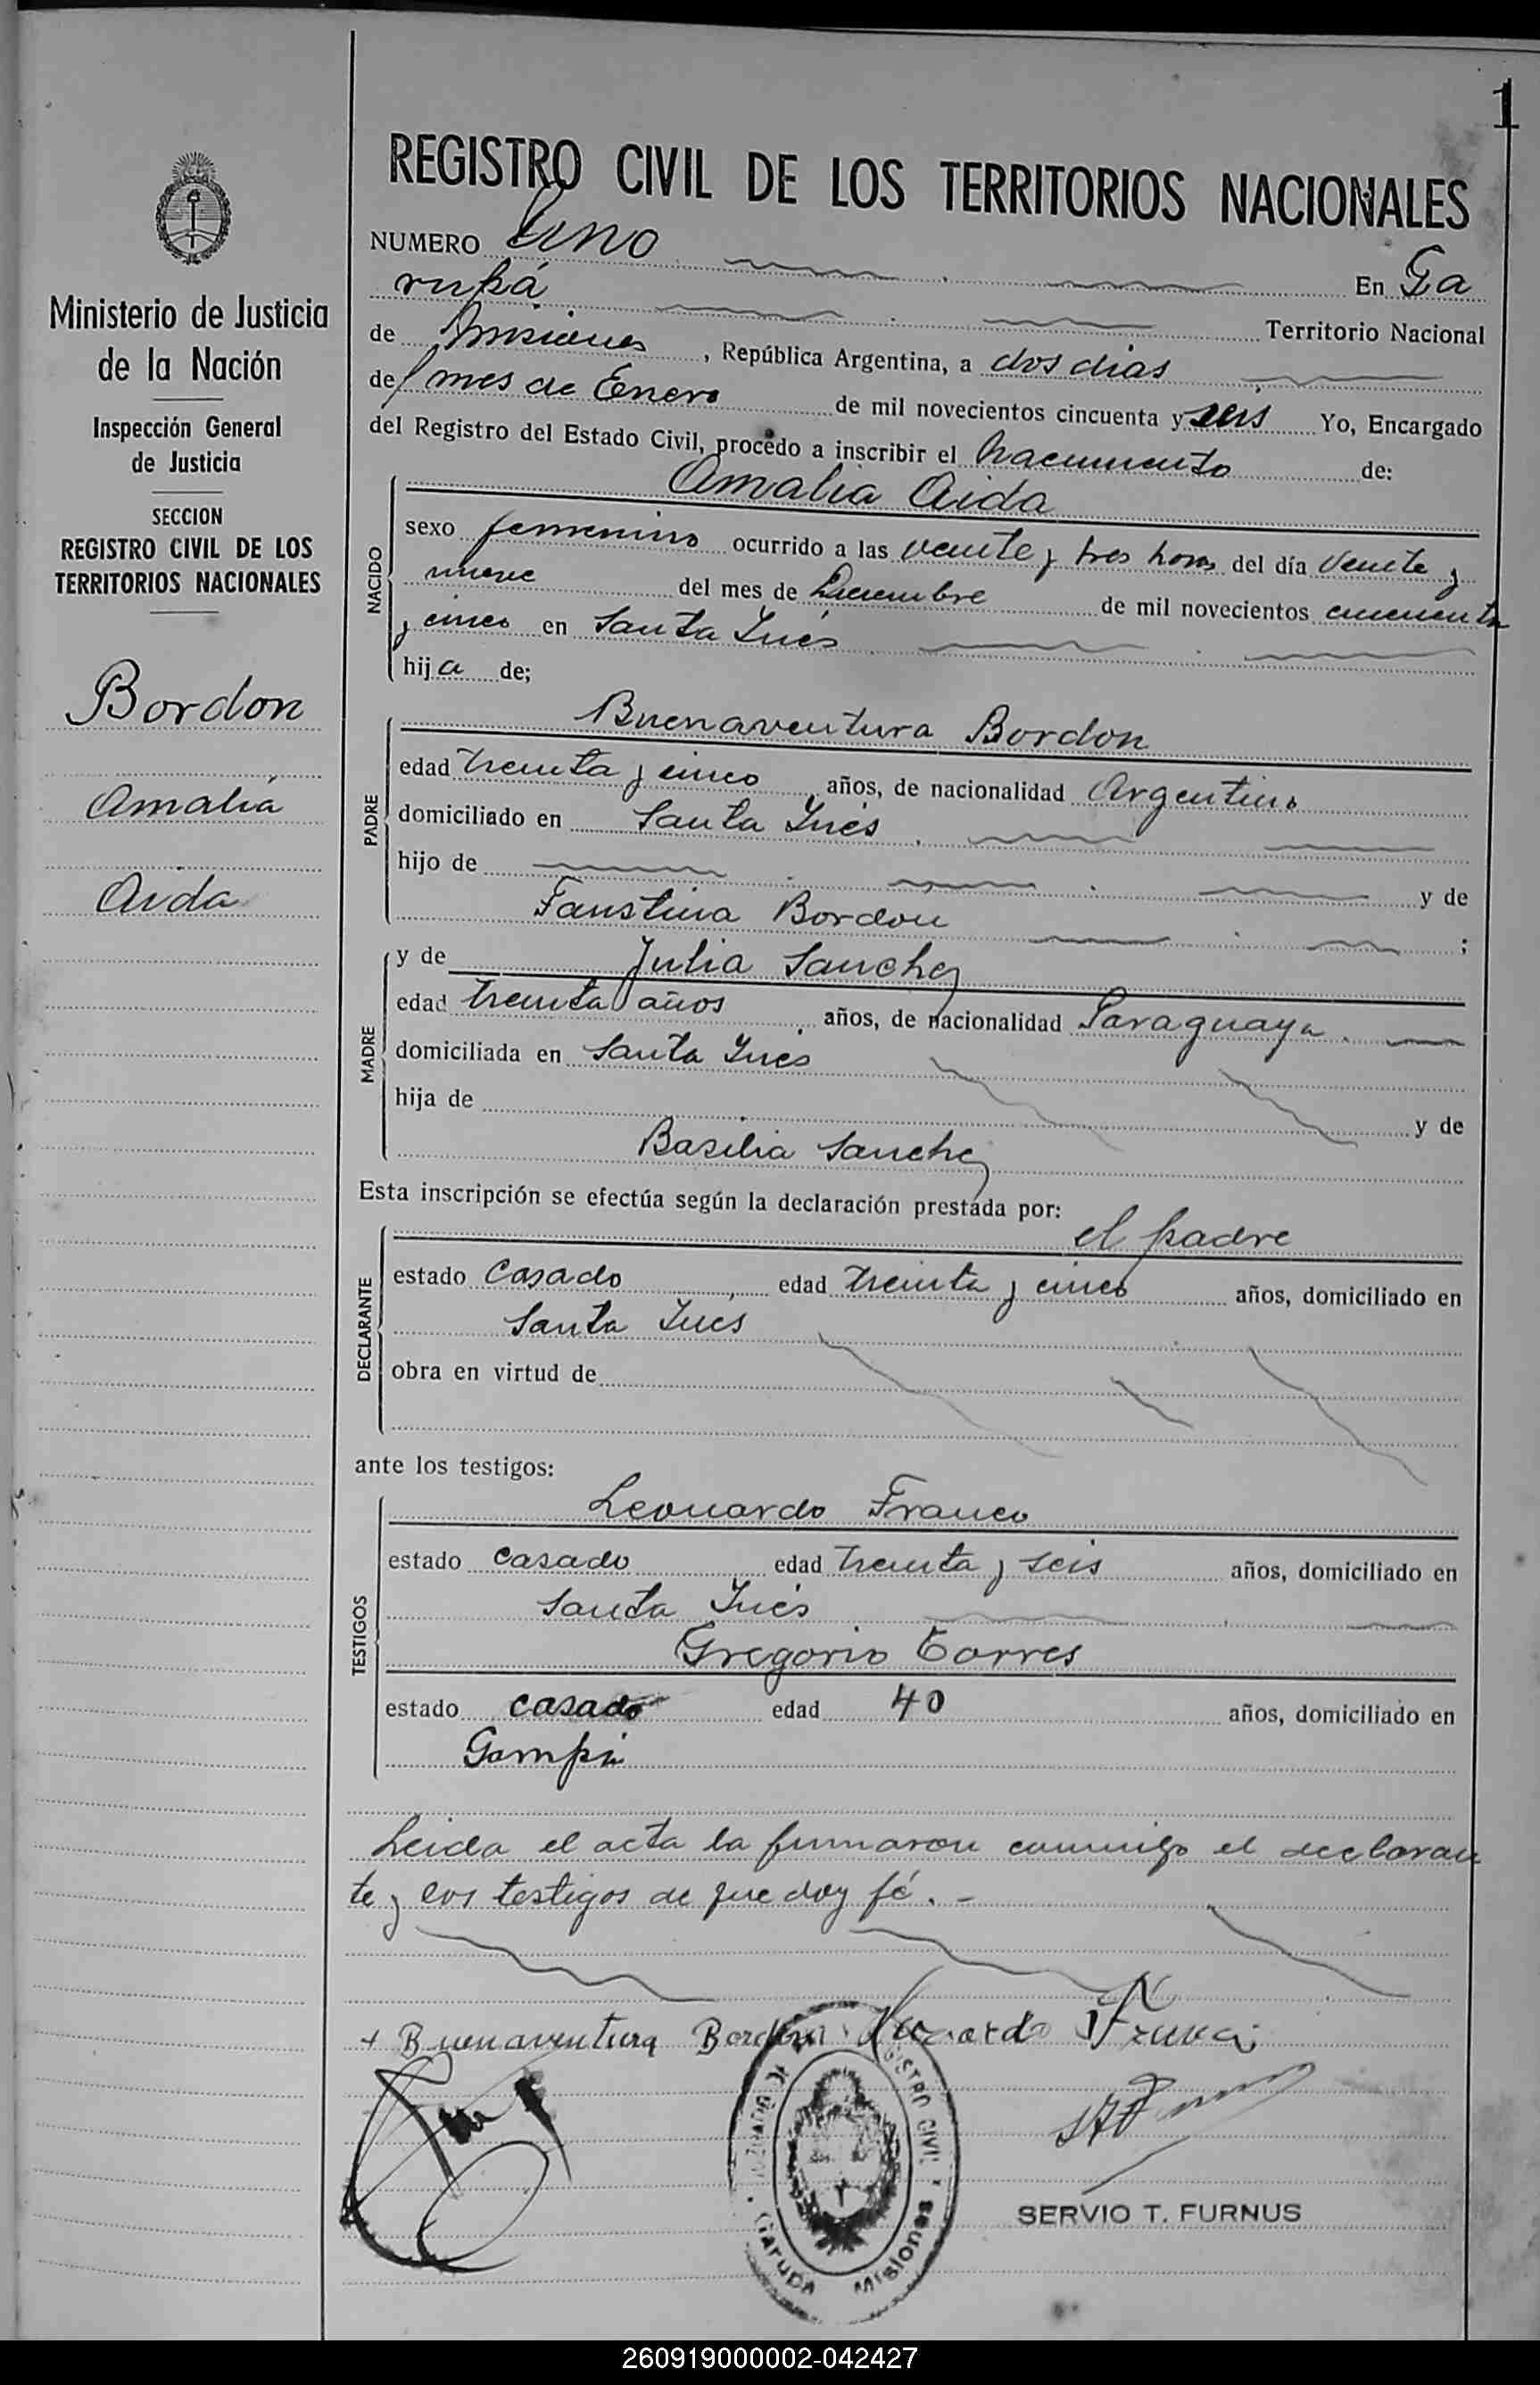 1
REGISTRO CIVIL DE LOS TERRITORIOS NACIONALES
NUMERO Uno En Ga
rupá Territorio Nacional
de Misiones, República Argentina, a dos dias
del mes de Enero de mil novecientos cincuenta y seis Yo, Encargado
del Registro del Estado Civil, procedo a inscribir el Nacimiento de:
Ministerio de Justicia
de la Nación
Inspección General
de Justicia
SECCION
REGISTRO CIVIL DE LOS
TERRITORIOS NACIONALES
Bordon
Amalia
Aida
NACIDO
Amalia Aida
sexo femenino ocurrido a las veinte y tres horas del día veinte y
nueve del mes de Diciembre de mil novecientos cincuenta
y cinco en Santa Inés
hija de;
PADRE
Buenaventura Bordon
edad treinta y cinco años, de nacionalidad Argentino
domiciliado en Santa Inés
hijo de y de
Faustina Bordon ;
MADRE
y de Julia Sanchez
edad treinta años años, de nacionalidad Paraguaya
domiciliada en Santa Inés
hija de y de
Basilia Sanchez
Esta inscripción se efectúa según la declaración prestada por:
DECLARANTE
el padre
estado Casado edad treinta y cinco años, domiciliado en
Santa Inés
obra en virtud de
ante los testigos:
TESTIGOS
Leonardo Franco
estado casado edad treinta y seis años, domiciliado en
Santa Inés
Gregorio Torres
estado casado edad 40 años, domiciliado en
Leida el acta la firmaron conmigo el declaran
te y los testigos de que doy fé. -
+ Buenaventura Bordon Leonardo Franco
REGISTRO CIVIL
Garupa Misiones
SERVIO T. FURNUS
260919000002-042427